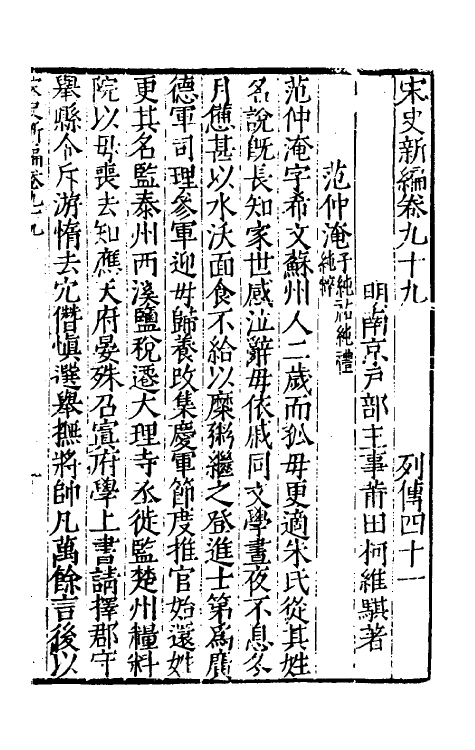 宋史新編卷九十九　列傳四十一
明南京戶部主事莆田柯維騏著
范仲淹子純祐純禮純粹
范仲淹字希文蘇州人二歲而孤毋更適朱氏從其姓
名說既長知家世感泣辭毋依戚同文學晝夜不息冬
月憊甚以水沃面食不給以糜粥繼之登進士第爲廣
德軍司理參軍迎毋歸養改集慶軍節度推官始還姓
更其名監泰州西溪鹽稅遷大理寺丞徙監楚州糧料
院以毋喪去知應天府晏殊召寘府學上書請擇郡守
舉縣令斥游惰去冗僭慎選舉撫將帥凡萬餘言後以
宋史新編卷九十九
一